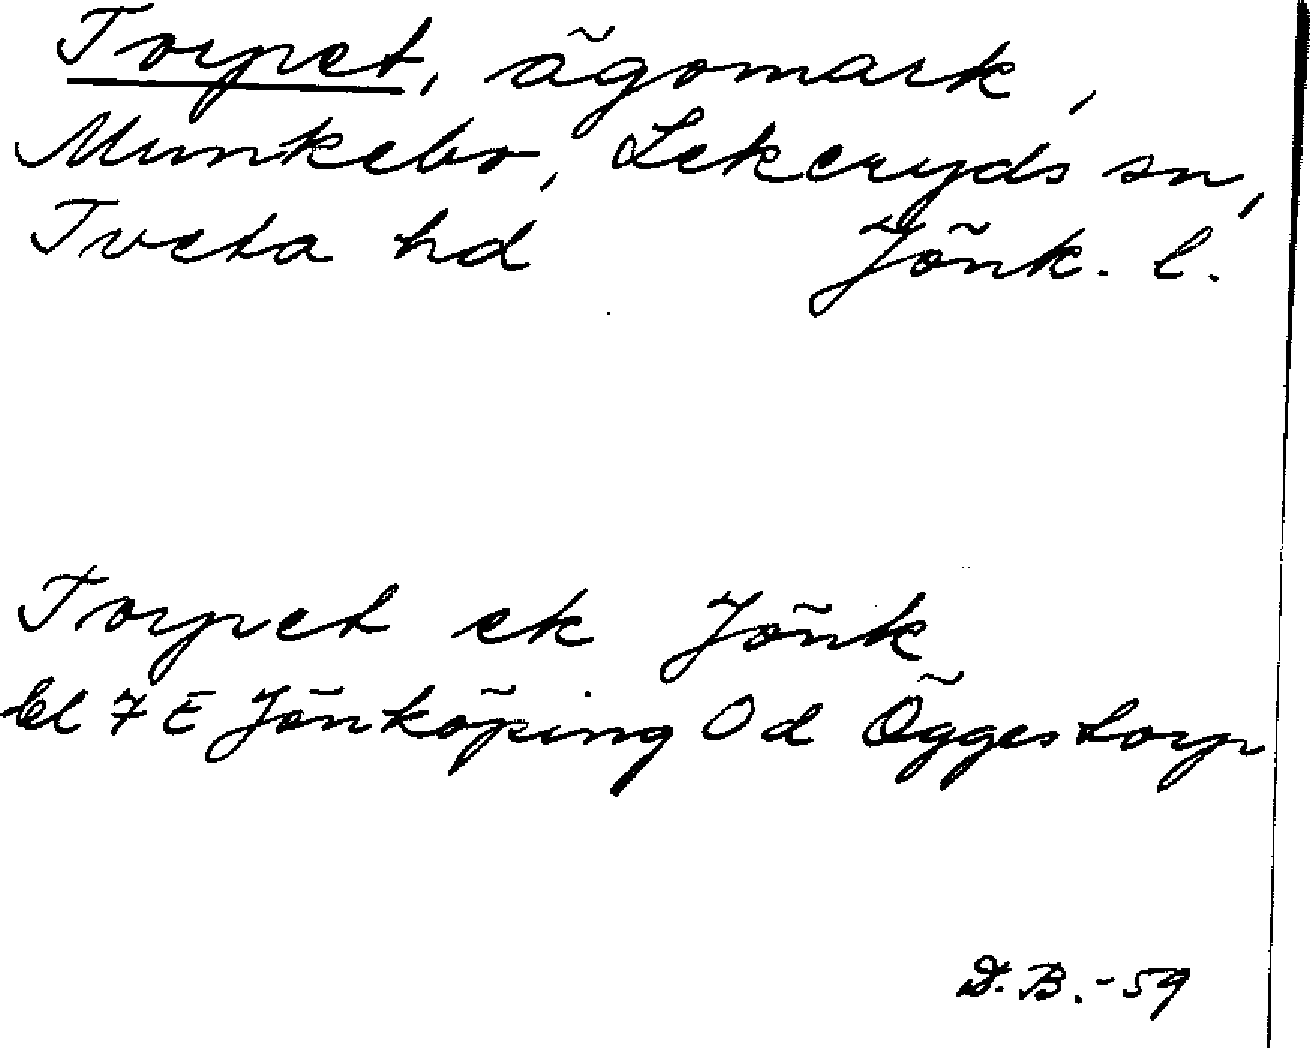 Torpet, ägomark,
Munkebo, Lekeryds sn,
Tveta hd Jönk. l.
Torpet ek Jönk
bl 7 E Jönköping 0 d Öggestorp
D. B. -59